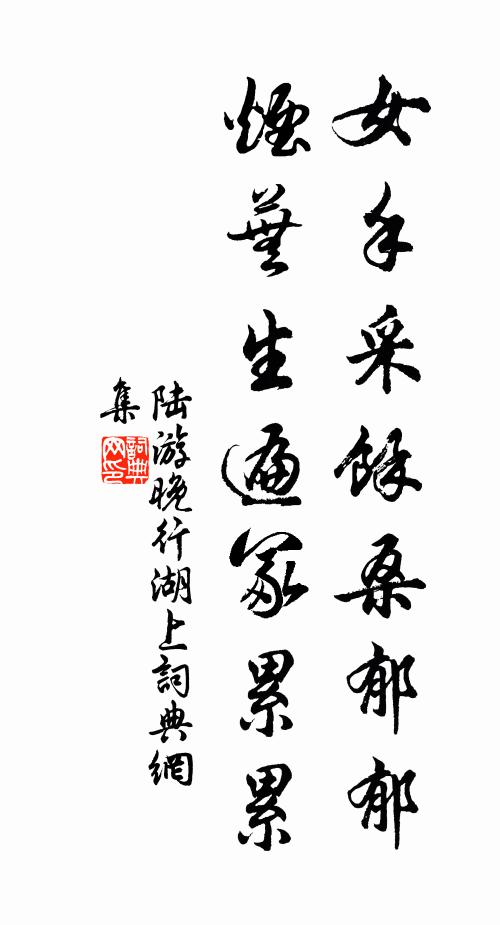 女手采餘桑郁郁
煙蕪生遍冢累累
陆游晚行湖上詞典網
集
詞典網印